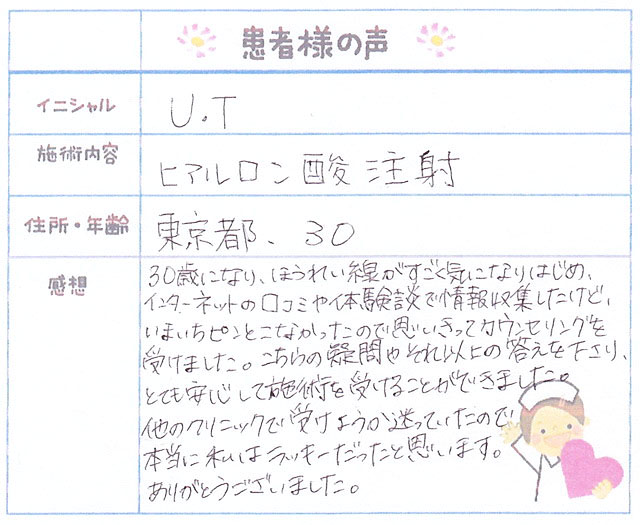 患者様の声
イニシャル
U.T
施術内容
ヒアルロン酸 注射
住所・年齢
東京都、30
感想
30歳になり、ほうれい線がすごく気になりはじめ、
インターネットの口コミや体験談で情報収集したけど、
いまいちピンとこなかったので思いきってカウンセリングを
受けました。こちらの疑問やそれ以上の答えを下さり、
とても安心して施術を受けることができました。
他のクリニックで受けようか迷っていたので
本当に私はラッキーだったと思います。
ありがとうございました。